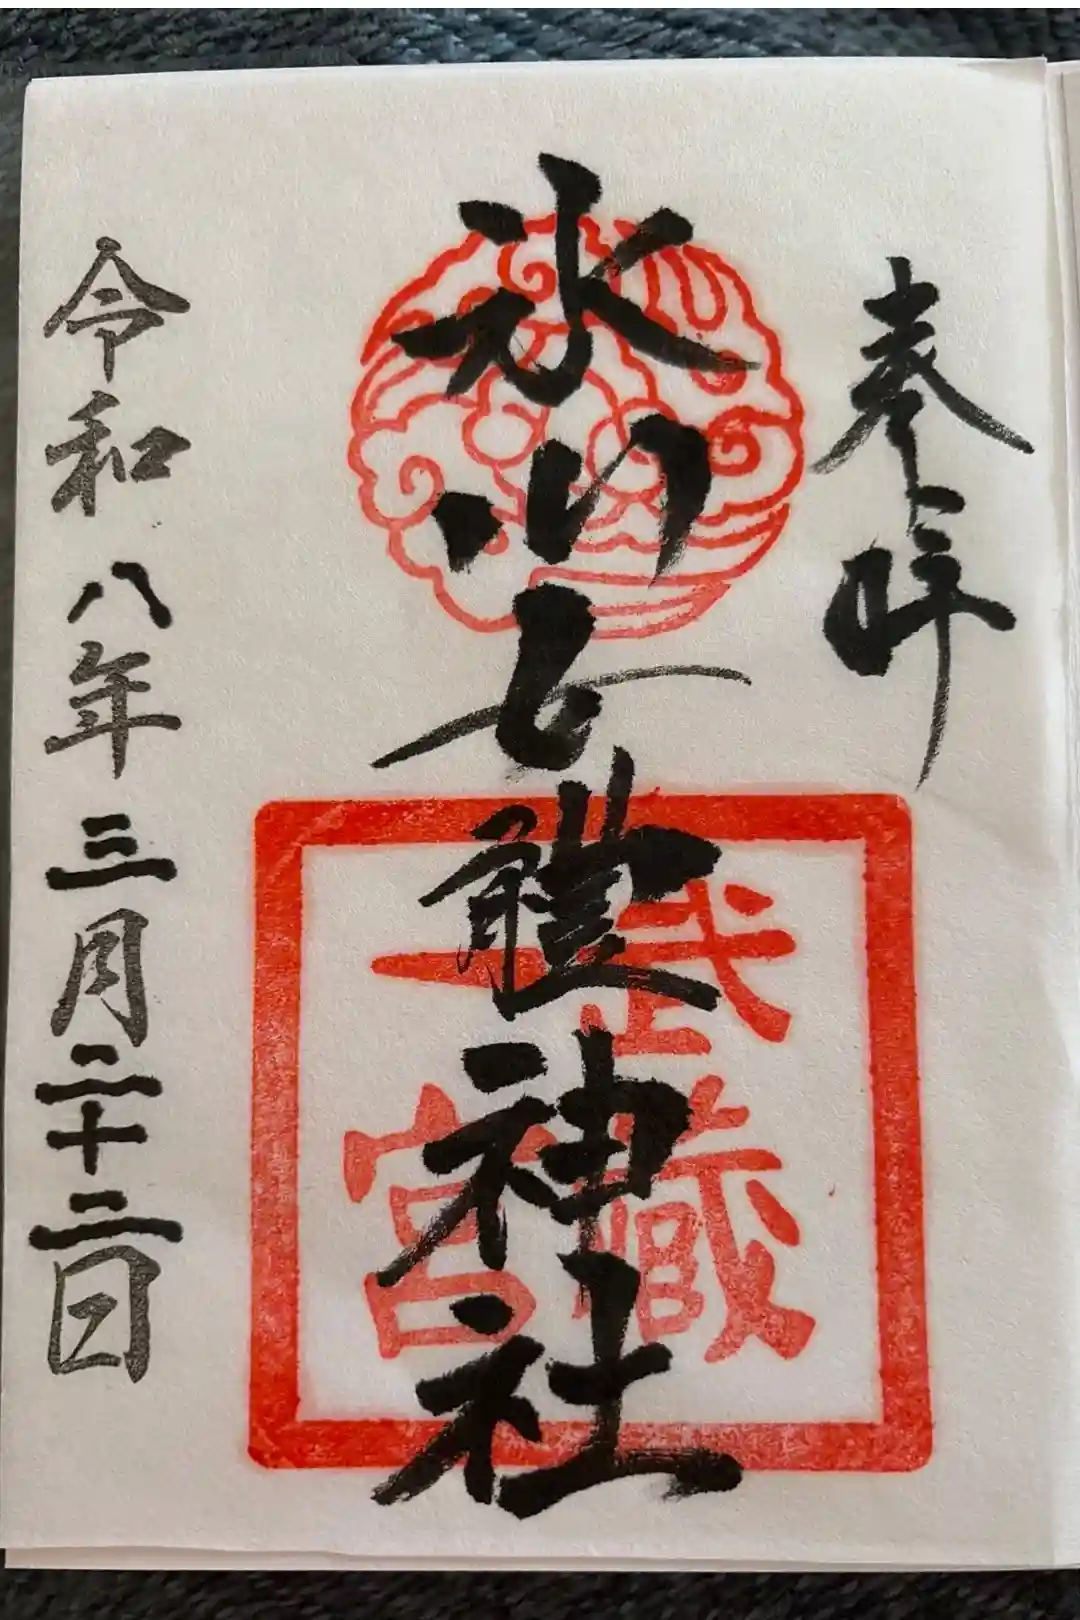 奉拝
氷川女體神社
武蔵
一宮
令和八年三月二十二日